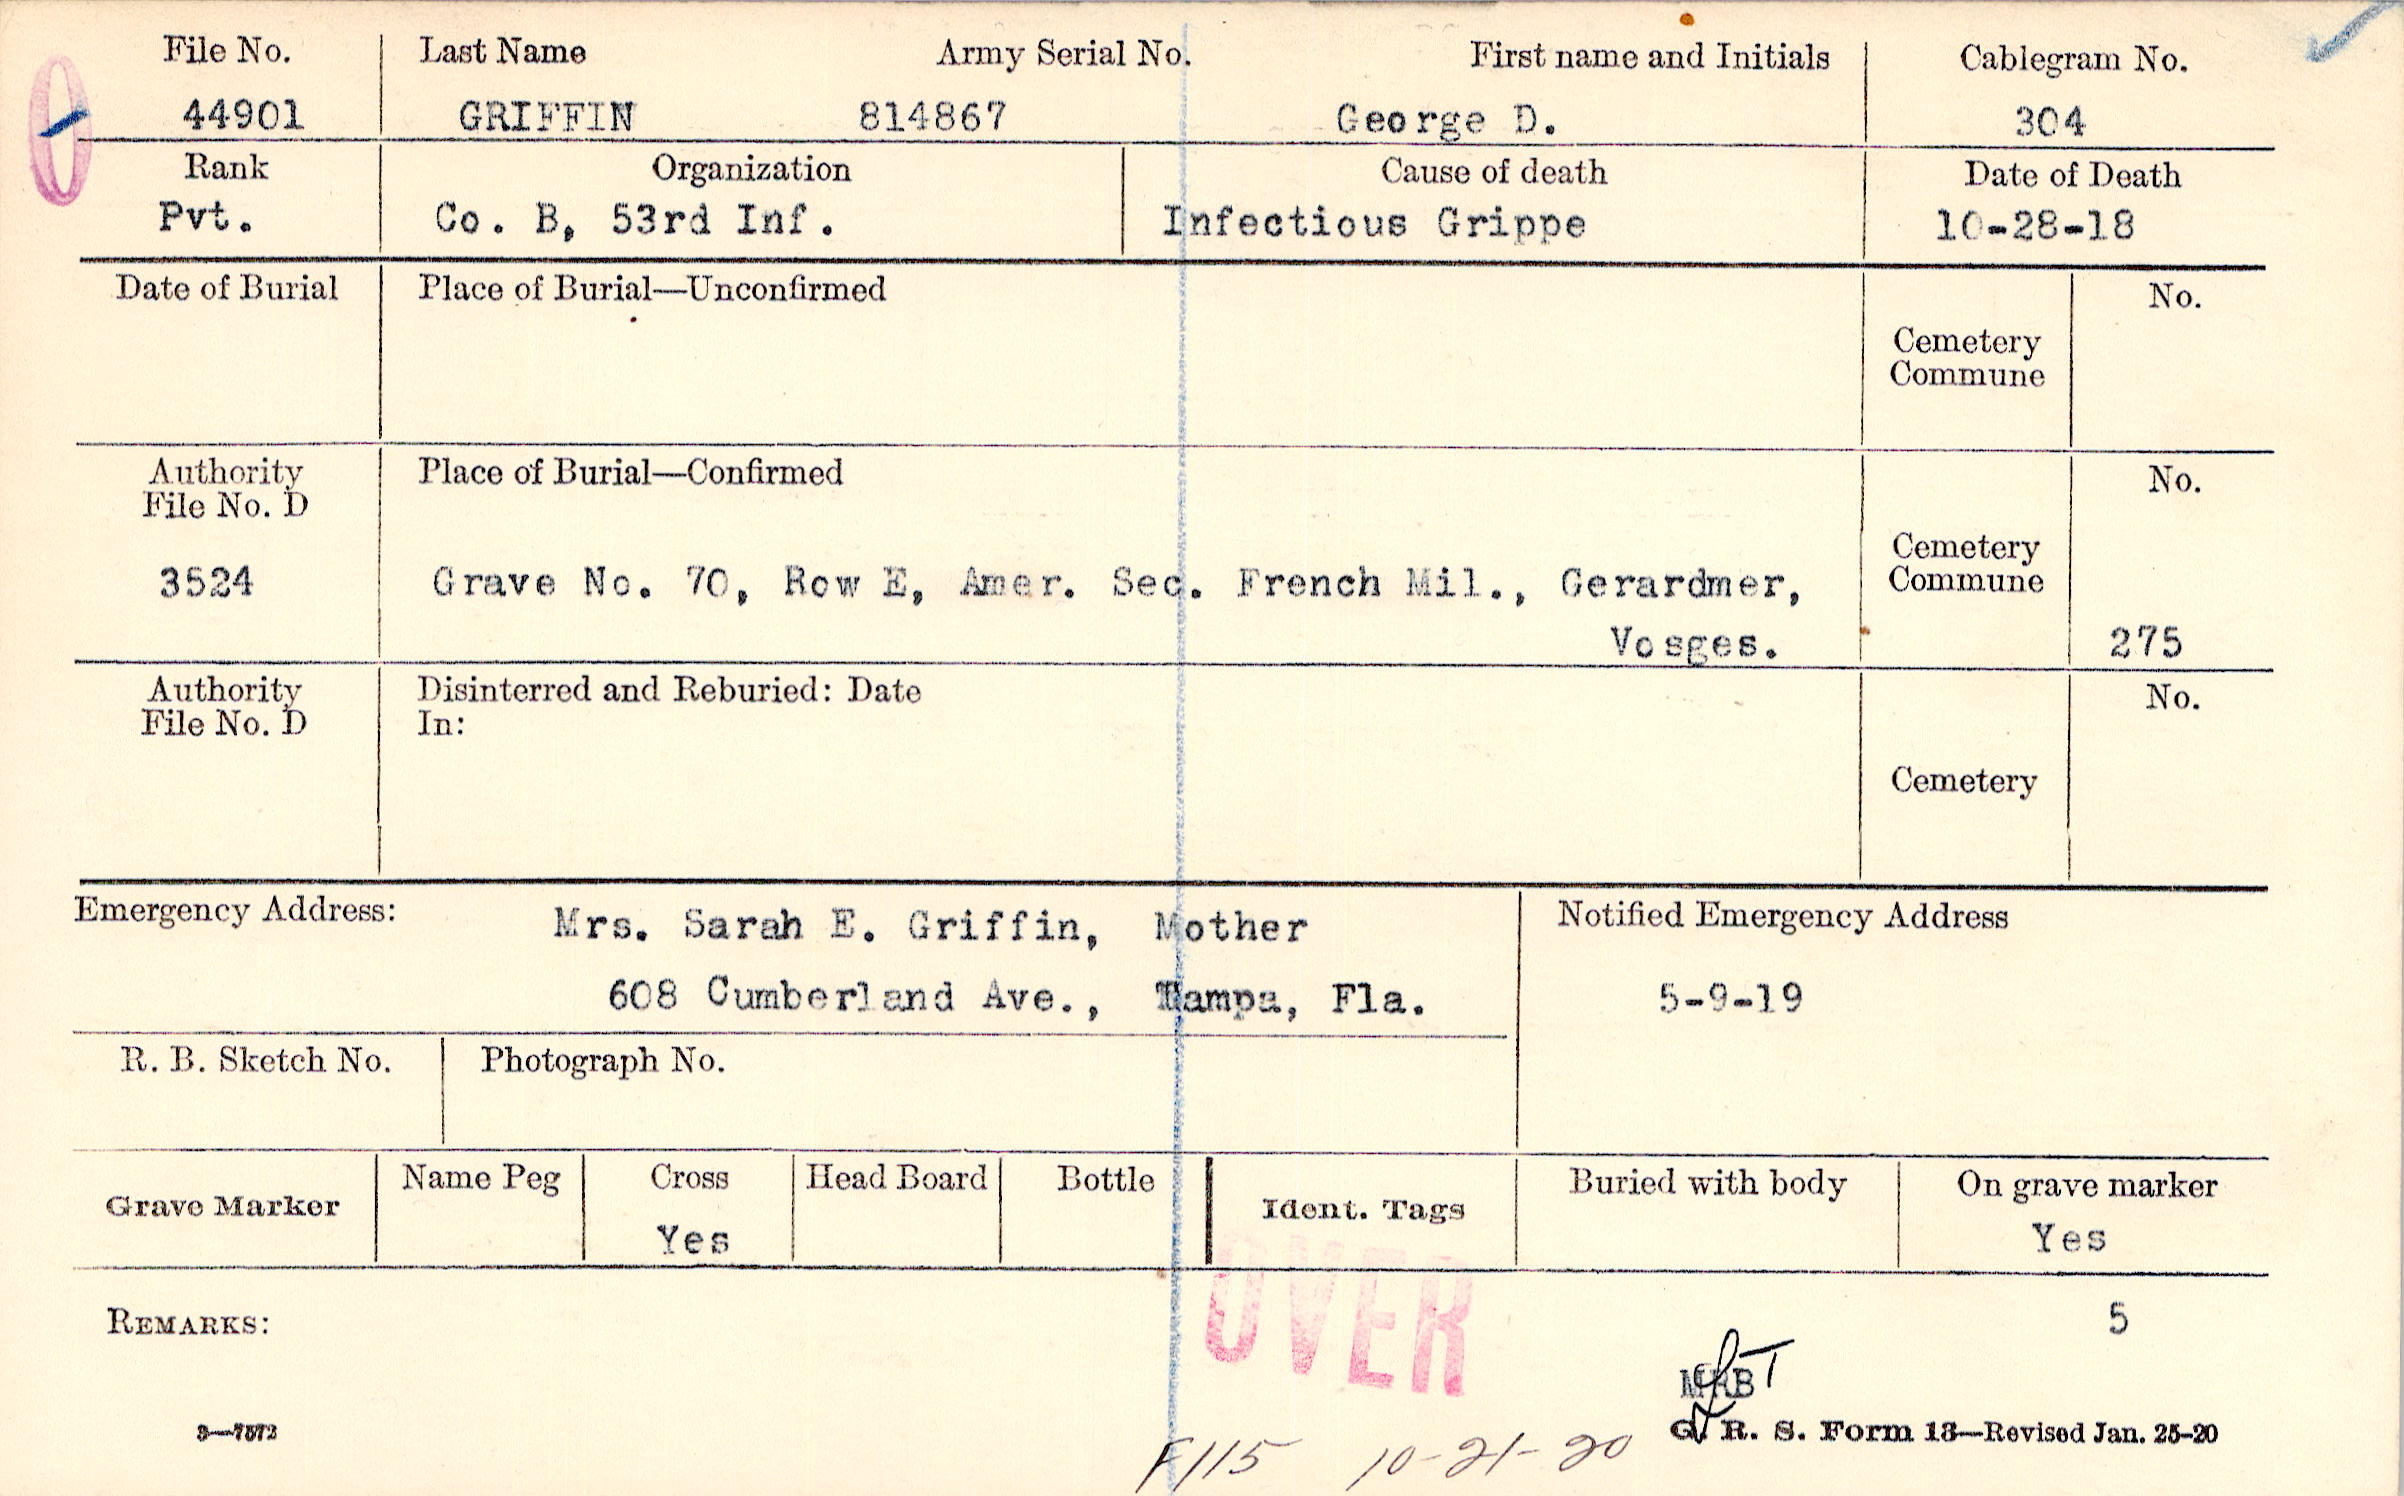 File No. Last Name Army Serial No. First name and Initials Cablegram No.
44901 GRIFFIN 814867 George D. 304
Rank Organization Cause of death Date of Death
Pvt. Co. B, 53rd Inf. Infectious Grippe 10-28-18
Date of Burial Place of Burial—Unconfirmed No.
Cemetery
Commune
Authority Place of Burial—Confirmed No.
File No. D
Cemetery
3524 Grave No. 70, Row E, Amer. Sec. French Mil., Gerardmer, Commune
Vosges. 275
Authority Disinterred and Reburied: Date No.
File No. D In:
Cemetery
Emergency Address: Mrs. Sarah E. Griffin, Mother Notified Emergency Address
608 Cumberland Ave., Tampa, Fla. 5-9-19
R. B. Sketch No. Photograph No.
Grave Marker Name Peg Cross Head Board Bottle Ident. Tags Buried with body On grave marker
Yes Yes
OVER
REMARKS: 5
3—7572 G. R. S. Form 13—Revised Jan. 25-20
F115 10-21-20